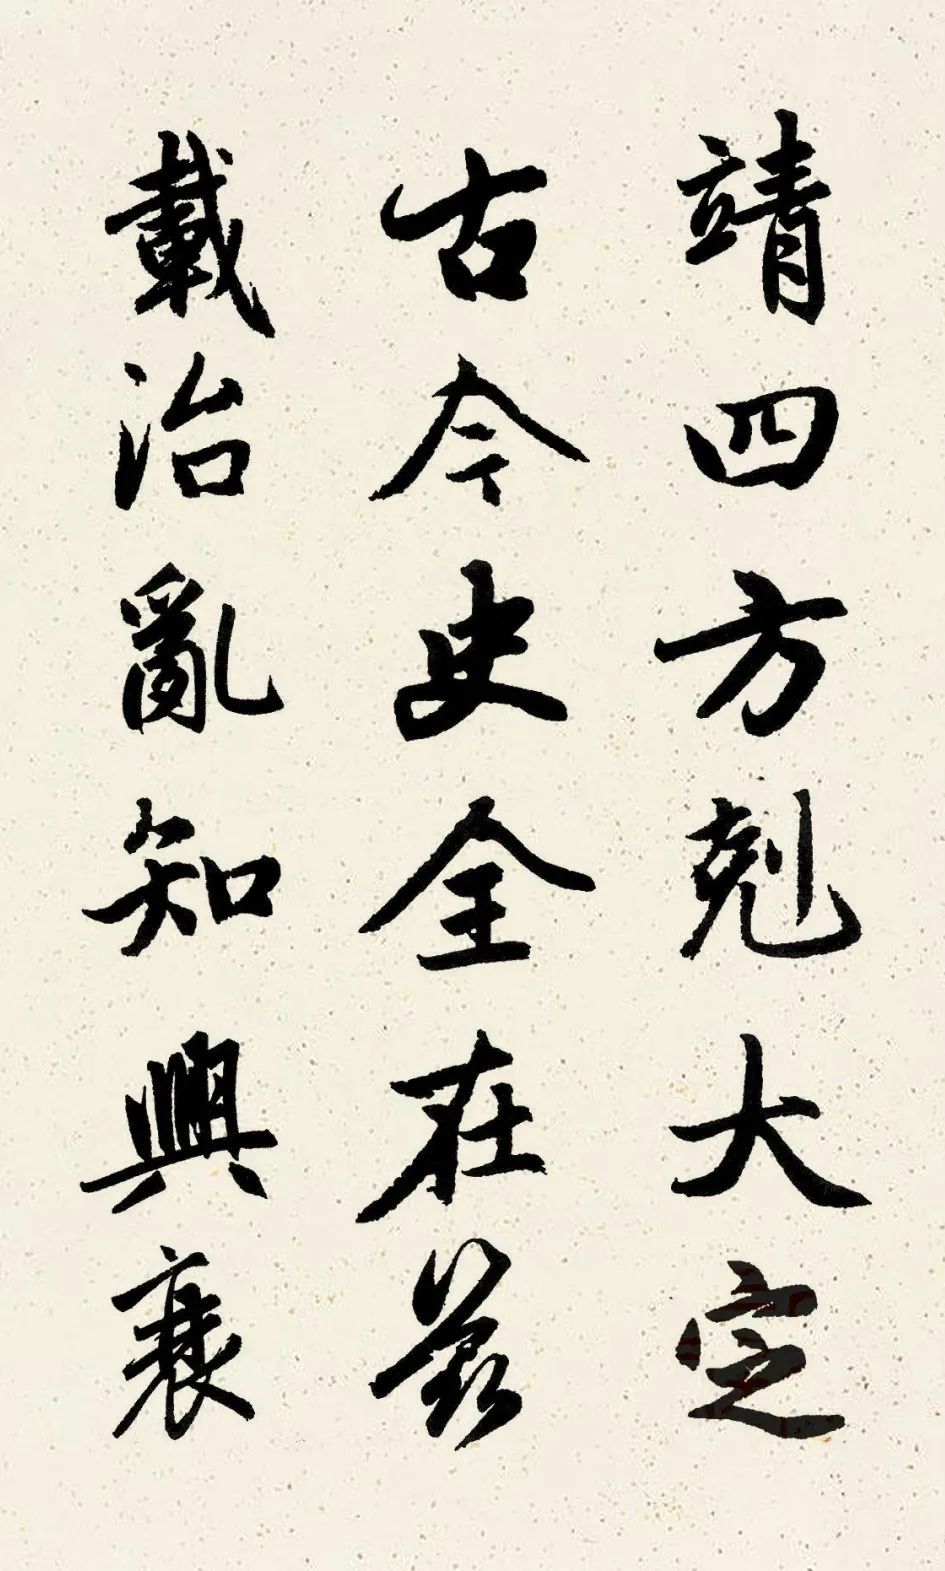 靖四方剋大定
古今史全在茲
載治亂知興衰